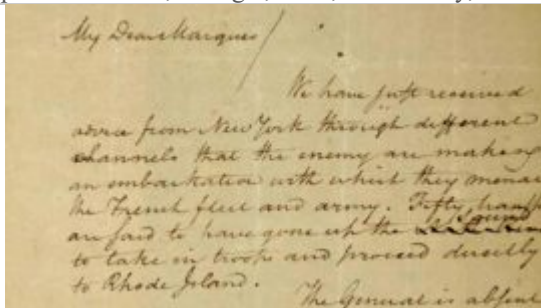 My Dear Marquis
We have just received
advice from New York through different
channels that the enemy are making
an embarkation with which they menac
the French fleet and army. Fifty transp
Sound
are said to have gone up the
to take in troops and proceed directly
to Rhode Island.
The General is absent